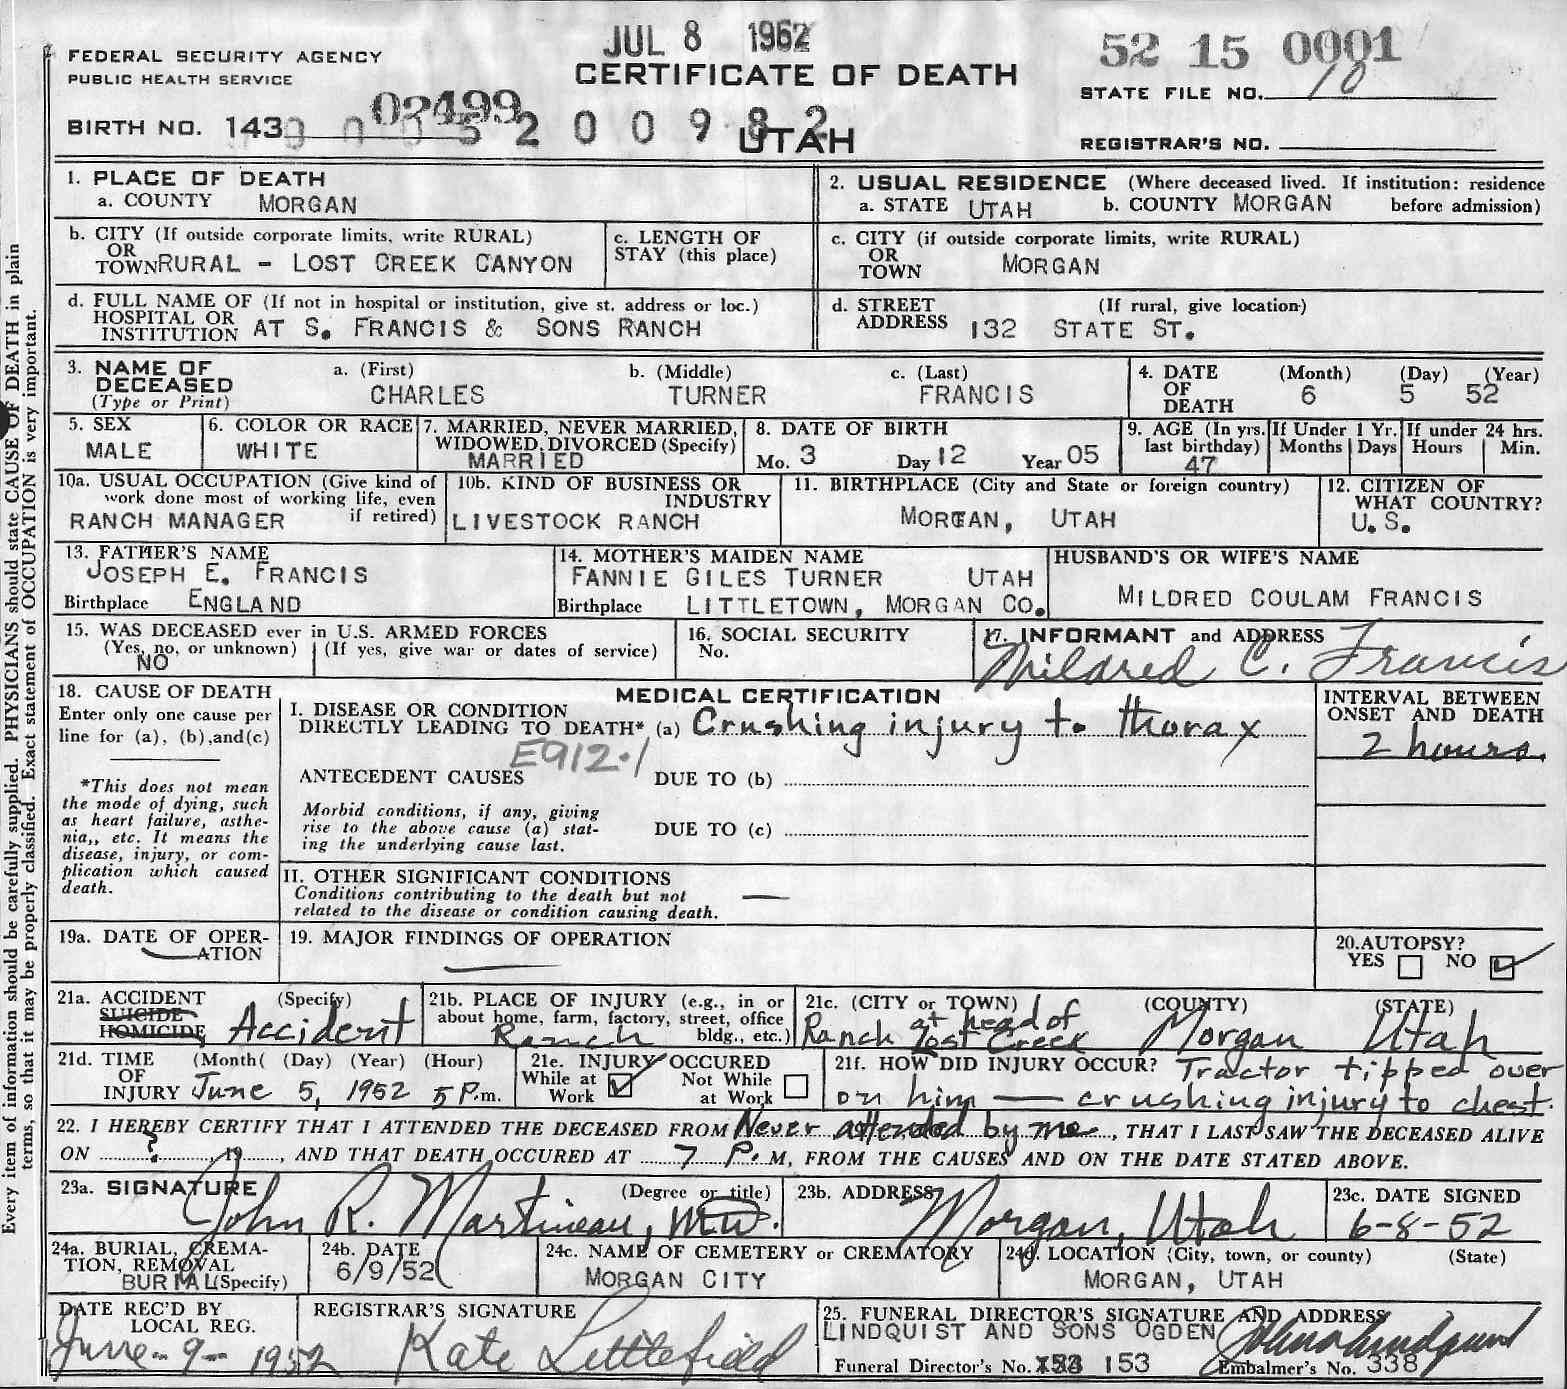 JUL 8 1962
52 15 0001
FEDERAL SECURITY AGENCY
PUBLIC HEALTH SERVICE
CERTIFICATE OF DEATH
STATE FILE NO. 10
02499
BIRTH NO. 143
5 2 0 0 9 8 2
UTAH
REGISTRAR'S NO.
1. PLACE OF DEATH
a. COUNTY MORGAN
2. USUAL RESIDENCE (Where deceased lived. If institution: residence before admission)
a. STATE UTAH b. COUNTY MORGAN
b. CITY (If outside corporate limits, write RURAL)
OR
TOWN RURAL - LOST CREEK CANYON
c. LENGTH OF
STAY (this place)
c. CITY (if outside corporate limits, write RURAL)
OR
TOWN MORGAN
d. FULL NAME OF (If not in hospital or institution, give st. address or loc.)
HOSPITAL OR
INSTITUTION AT S. FRANCIS & SONS RANCH
d. STREET (If rural, give location)
ADDRESS 132 STATE ST.
3. NAME OF
DECEASED
(Type or Print)
a. (First) b. (Middle) c. (Last)
CHARLES TURNER FRANCIS
4. DATE (Month) (Day) (Year)
OF
DEATH 6 5 52
5. SEX
MALE
6. COLOR OR RACE
WHITE
7. MARRIED, NEVER MARRIED,
WIDOWED, DIVORCED (Specify)
MARRIED
8. DATE OF BIRTH
Mo. 3 Day 12 Year 05
9. AGE (In yrs.
last birthday)
47
If Under 1 Yr.
Months Days
If under 24 hrs.
Hours Min.
10a. USUAL OCCUPATION (Give kind of
work done most of working life, even
if retired)
RANCH MANAGER
10b. KIND OF BUSINESS OR
INDUSTRY
LIVESTOCK RANCH
11. BIRTHPLACE (City and State or foreign country)
MORGAN, UTAH
12. CITIZEN OF
WHAT COUNTRY?
U.S.
13. FATHER'S NAME
JOSEPH E. FRANCIS
Birthplace ENGLAND
14. MOTHER'S MAIDEN NAME
FANNIE GILES TURNER UTAH
Birthplace LITTLETOWN, MORGAN CO.
HUSBAND'S OR WIFE'S NAME
MILDRED COULAM FRANCIS
15. WAS DECEASED ever in U.S. ARMED FORCES
(Yes, no, or unknown) (If yes, give war or dates of service)
NO
16. SOCIAL SECURITY
No.
17. INFORMANT and ADDRESS
Mildred C. Francis
18. CAUSE OF DEATH
Enter only one cause per
line for (a), (b), and(c)
*This does not mean
the mode of dying, such
as heart failure, asthe-
nia,, etc. It means the
disease, injury, or com-
plication which caused
death.
MEDICAL CERTIFICATION
I. DISEASE OR CONDITION
DIRECTLY LEADING TO DEATH* (a) Crushing injury to thorax
E912.1
ANTECEDENT CAUSES DUE TO (b)
Morbid conditions, if any, giving
rise to the above cause (a) stat-
ing the underlying cause last.
DUE TO (c)
II. OTHER SIGNIFICANT CONDITIONS
Conditions contributing to the death but not
related to the disease or condition causing death. —
INTERVAL BETWEEN
ONSET AND DEATH
2 hours.
19a. DATE OF OPER-
ATION —
19. MAJOR FINDINGS OF OPERATION
—
20. AUTOPSY?
YES ☐ NO ☑
21a. ACCIDENT (Specify)
SUICIDE
HOMICIDE Accident
21b. PLACE OF INJURY (e.g., in or
about home, farm, factory, street, office
bldg., etc.)
Ranch
21c. (CITY or TOWN) (COUNTY) (STATE)
Ranch at head of Lost Creek Morgan Utah
21d. TIME (Month( (Day) (Year) (Hour)
OF
INJURY June 5, 1952 5 P.m.
21e. INJURY OCCURED
While at Work ☑ Not While at Work ☐
21f. HOW DID INJURY OCCUR? Tractor tipped over
on him — crushing injury to chest.
22. I HEREBY CERTIFY THAT I ATTENDED THE DECEASED FROM Never attended by me, THAT I LAST SAW THE DECEASED ALIVE
ON ?, 19, AND THAT DEATH OCCURED AT 7 P.M, FROM THE CAUSES AND ON THE DATE STATED ABOVE.
23a. SIGNATURE (Degree or title)
John R. Martineau, M.D.
23b. ADDRESS
Morgan, Utah
23c. DATE SIGNED
6-8-52
24a. BURIAL, CREMA-
TION, REMOVAL
BURIAL (Specify)
24b. DATE
6/9/52
24c. NAME OF CEMETERY or CREMATORY
MORGAN CITY
24d. LOCATION (City, town, or county) (State)
MORGAN, UTAH
DATE REC'D BY
LOCAL REG.
June-9-1952
REGISTRAR'S SIGNATURE
Kate Littlefield
25. FUNERAL DIRECTOR'S SIGNATURE AND ADDRESS
LINDQUIST AND SONS OGDEN
Funeral Director's No. 153 Embalmer's No. 338
Every item of information should be carefully supplied. PHYSICIANS should state CAUSE OF DEATH in plain
terms, so that it may be properly classified. Exact statement of OCCUPATION is very important.